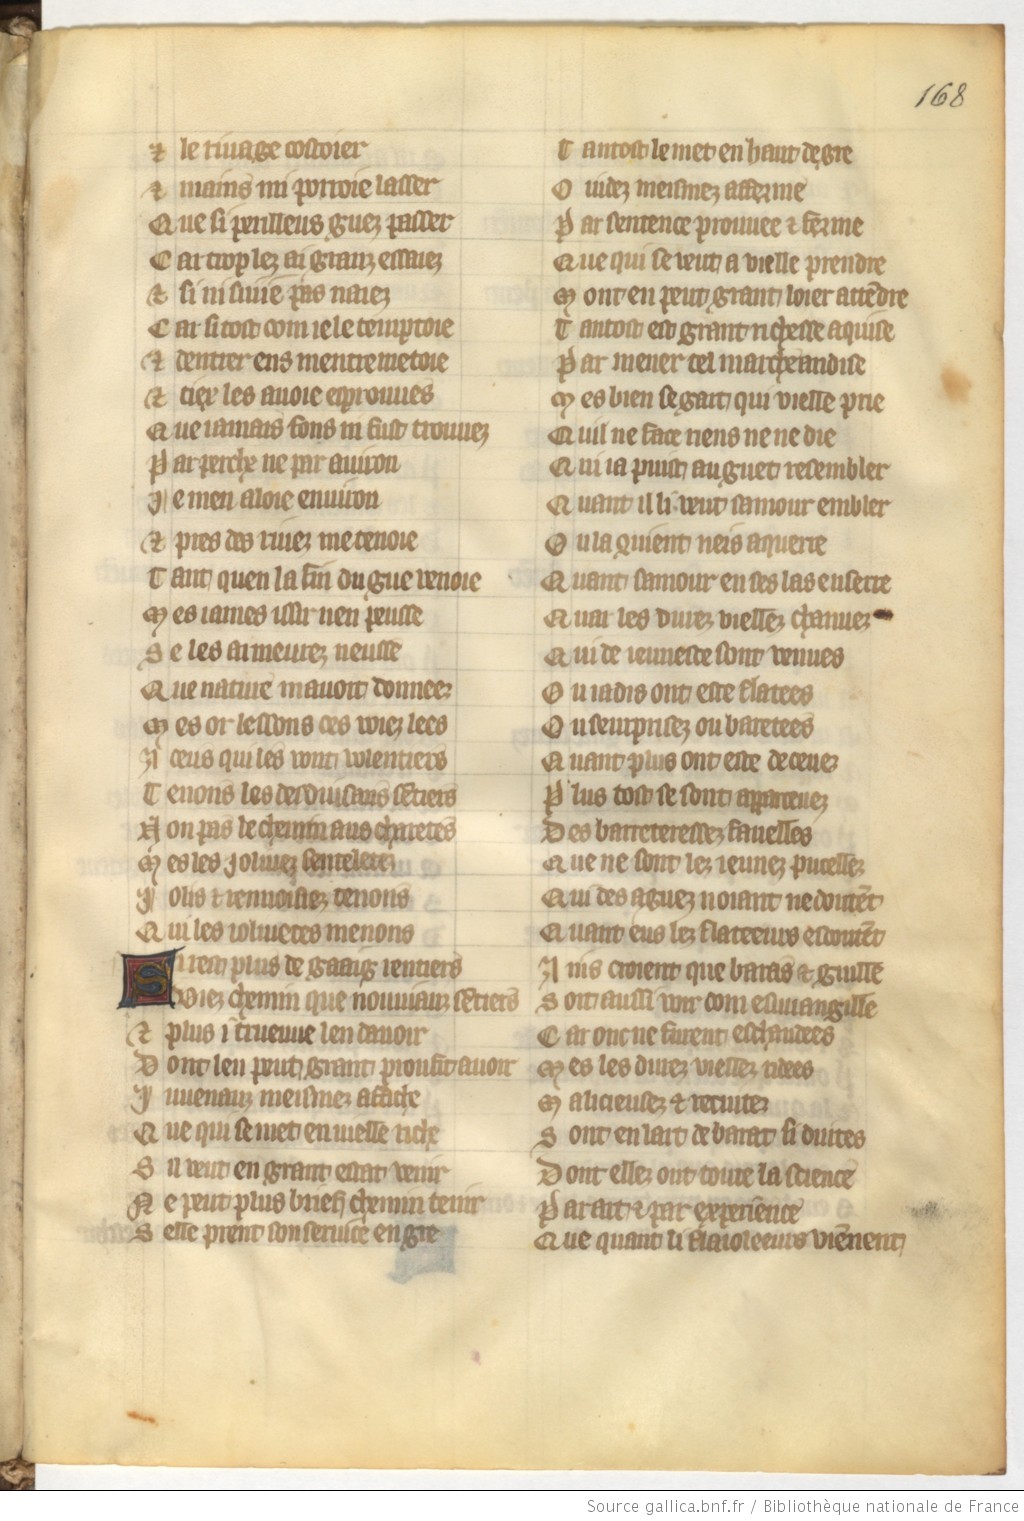 168
⁊ le riuage costoier
⁊ mains mi porroie lasser
Que si perilleus guez passer
Car trop lez ai granz essaiez
⁊ si ni suie pas naiez
Car si tost com ie le temptoie
⁊ dentrer ens mentremetoie
⁊ tiex les auoie esprouues
Que iamais fons ni fust trouuez
Par perche ne par auiron
Je men aloie enuiron
⁊ pres des riuez me tenoie
Tant quen la fin du gue venoie
Mes iames issir nen peusse
Se les armeurez neusse
Que nature mauoit donneez
Mes or lessons ces voiez lees
A ceus qui les vont volentiers
Tenons les desduisans sentiers
Non pas le chemin aus charetes
Mes les joliuez senteletez
Jolis ⁊ renuoisiez tenons
Qui les ioliuetes menons
Si rest plus de gaaig rentiers
Viez chemin que nouuiauz sētiers
⁊ plus i trueuue len dauoir
Dont len peut grant proufit auoir
Juuenauz meismez afiche
Que qui se met en vielle riche
Sil veut en grant estat venir
Ne peut plus brief chemin tenir
Selle prent son seruice en gre
Tantost le met en haut degre
Ouidez meismez afferme
Par sentence prouuee ⁊ ferme
Que qui se veut a vielle prendre
Mont en peut grant loier attēdre
Tantost est grant richesse aquise
Par mener tel marcheandise
Mes bien se gart qui vielle prie
Quil ne face riens ne ne die
Qui ia puist au guet resembler
Quant il li veut samour embler
Ou la quient neis aquerre
Quant samour en ses las enserre
Quar les durez viellez chanuez
Qui de ieunesce sont venues
Ou iadis ont este flatees
Ou seurprisez ou baretees
Quant plus ont este deceuez
Plus tost se sont aparceuez
Des barreteressez fauelles
Que ne sont lez ieunez pucellez
Qui des aguez noiant ne doutēt
Quant eus lez flateeurs escoutēt
Ains croient que baras ⁊ guille
Soit aussi voir com esuuangille
Car onc ne furent eschaudees
Mes les durez viellez ridees
Malicieusez ⁊ recuitez
Sont en lart de barat si duites
Dont ellez ont toute la science
Par art ⁊ par experience
Que quant li flaioleeurs viēnent
Source gallica.bnf.fr / Bibliothèque nationale de France